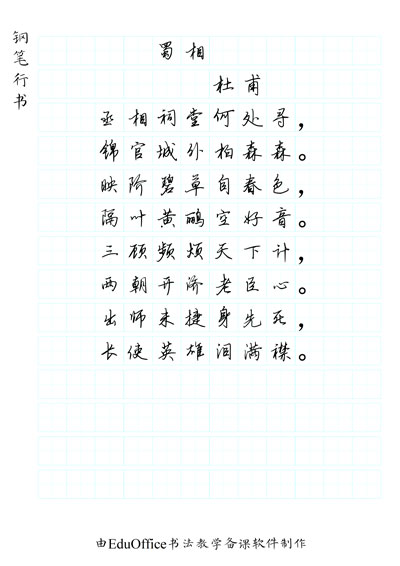 钢笔行书
蜀相
杜甫
丞相祠堂何处寻，
锦官城外柏森森。
映阶碧草自春色，
隔叶黄鹂空好音。
三顾频烦天下计，
两朝开济老臣心。
出师未捷身先死，
长使英雄泪满襟。
由EduOffice书法教学备课软件制作